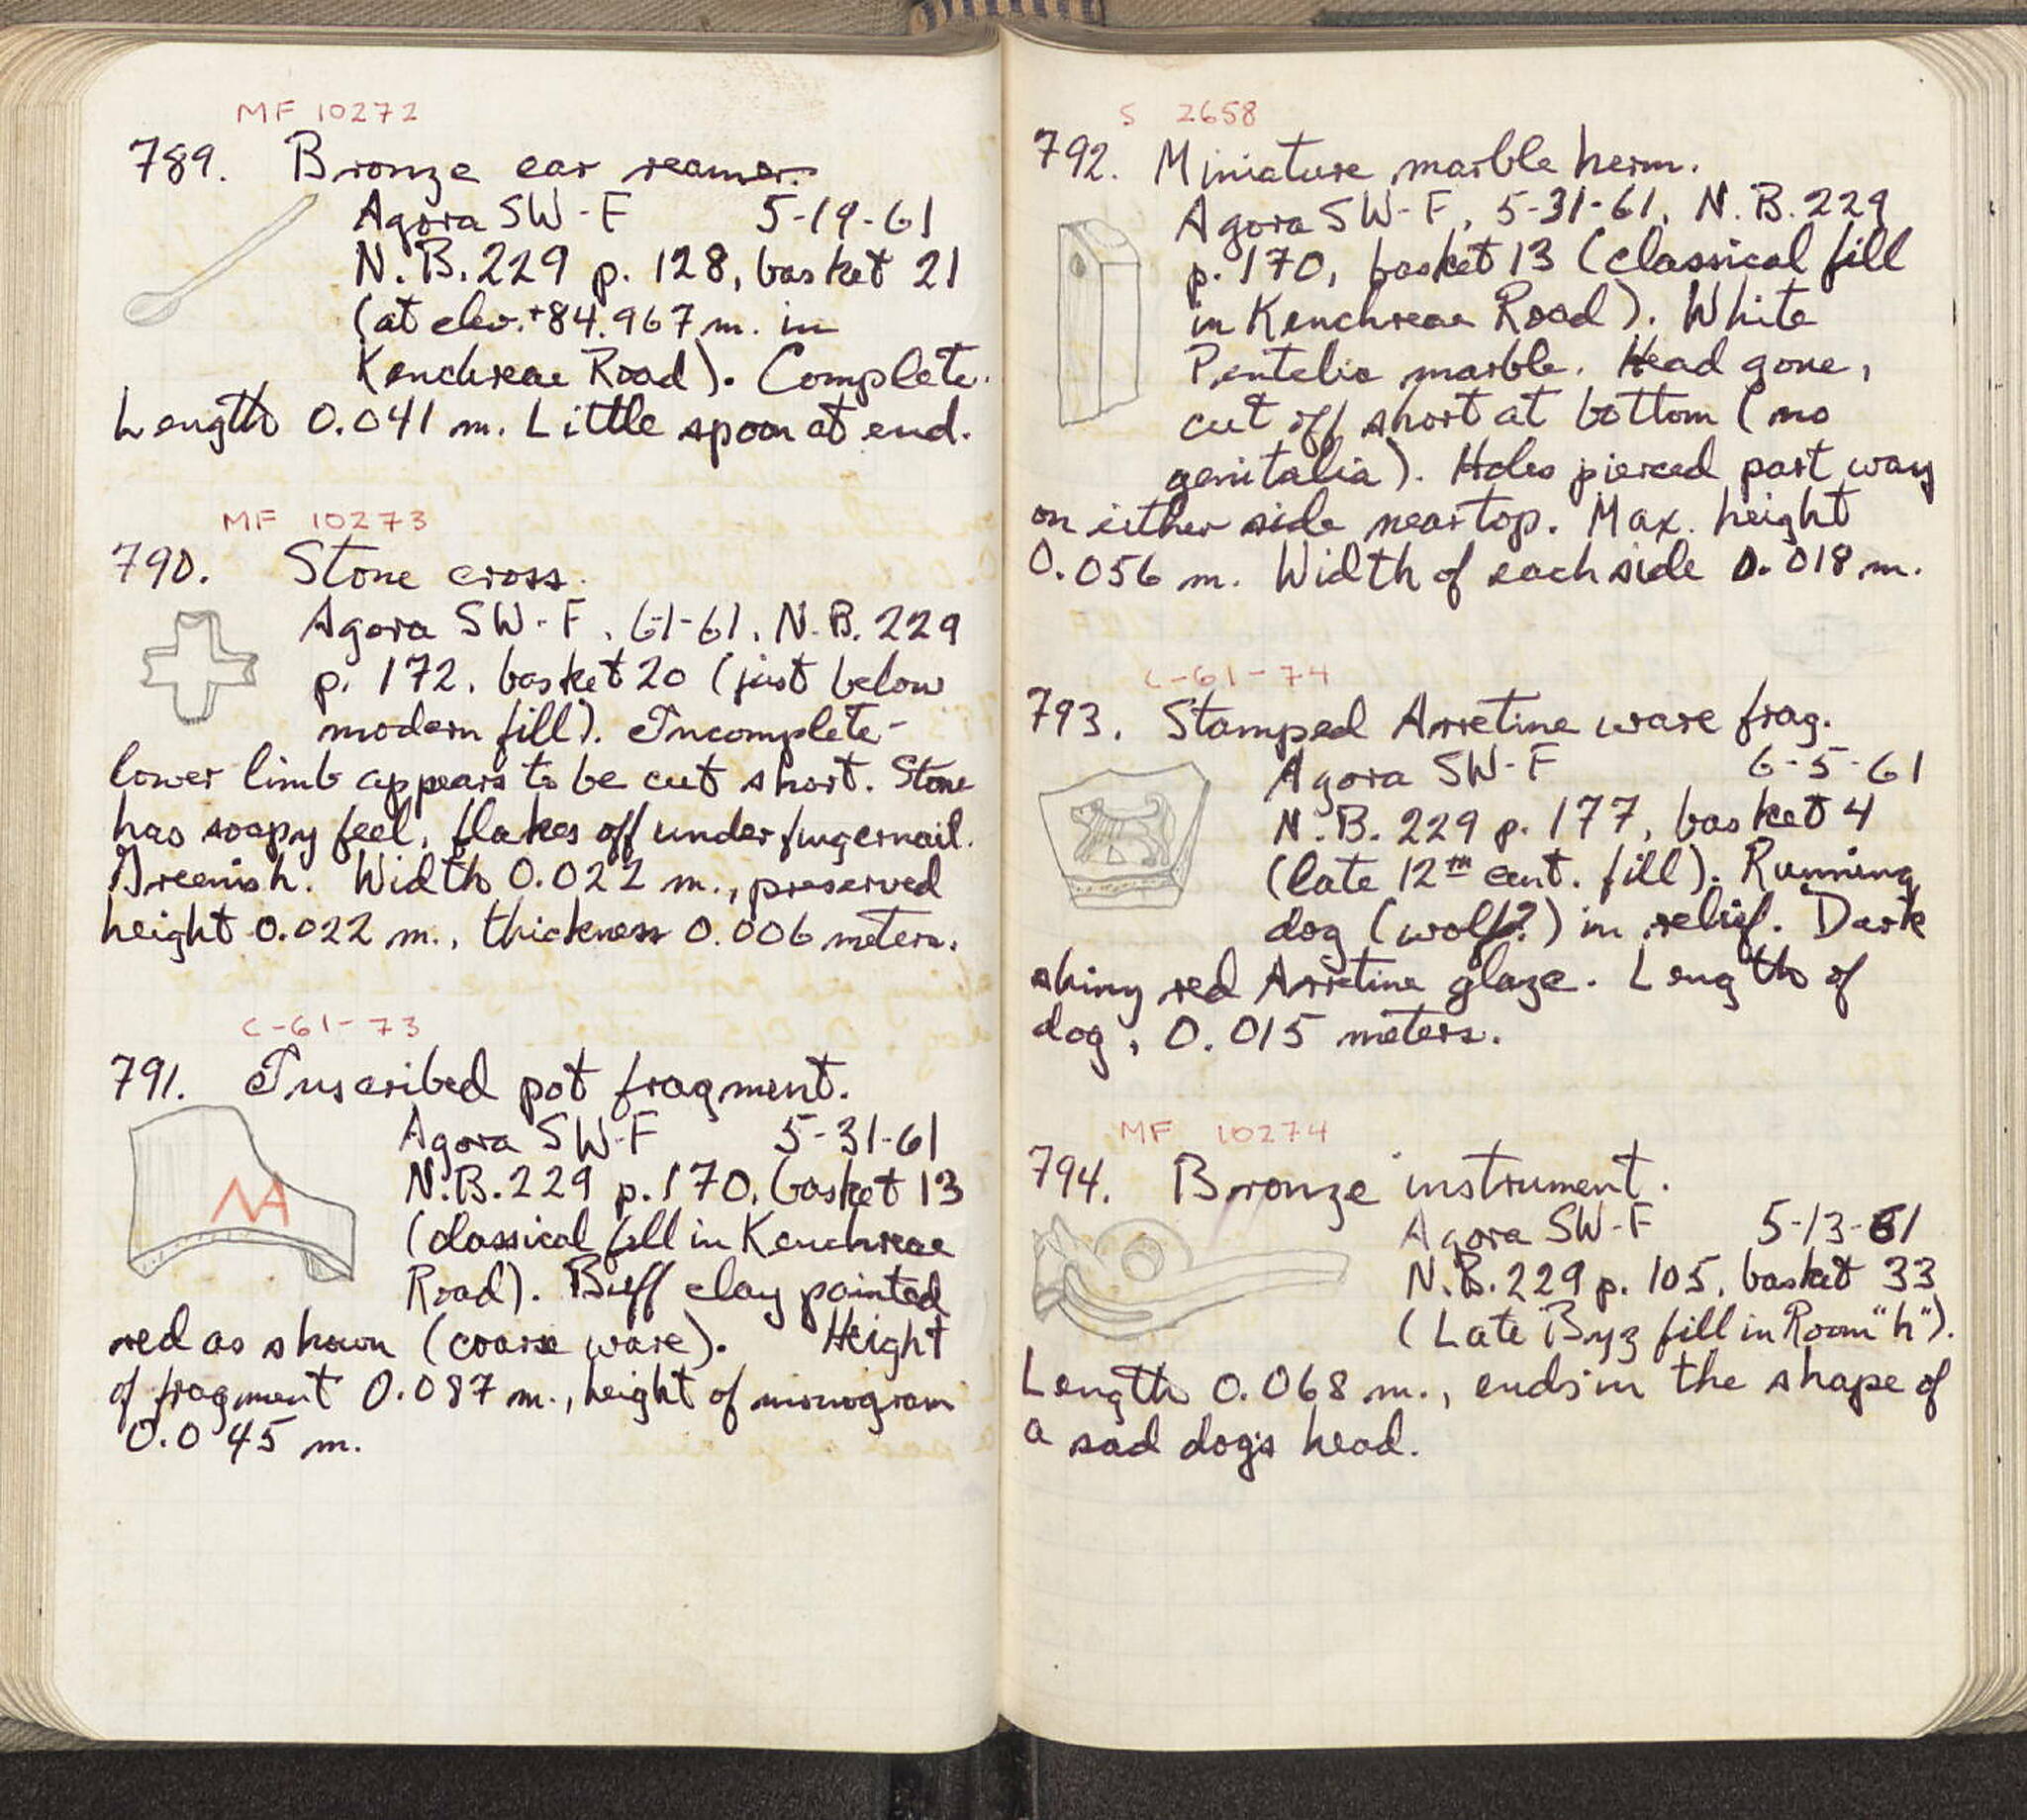 MF 10272
789. Bronze ear reamer.
Agora SW-F 5-19-61
N.B. 229 p. 128, basket 21
(at elev. +84.967 m. in
Kenchreae Road). Complete.
Length 0.041 m. Little spoon at end.
MF 10273
790. Stone cross.
Agora SW-F, 6-1-61, N.B. 229
p. 172, basket 20 (just below
modern fill). Incomplete-
lower limb appears to be cut short. Stone
has soapy feel, flakes off under fingernail.
Greenish. Width 0.022 m., preserved
height 0.022 m., thickness 0.006 meters.
C-61-73
791. Inscribed pot fragment.
Agora SW-F 5-31-61
N.B. 229 p. 170, basket 13
(classical fill in Kenchreae
Road). Buff clay painted
red as shown (coarse ware). Height
of fragment 0.087 m., height of monogram
0.045 m.
S 2658
792. Miniature marble herm.
Agora SW-F, 5-31-61, N.B. 229
p. 170, basket 13 (classical fill
in Kenchreae Road). White
Pentelic marble. Head gone,
cut off short at bottom (no
genitalia). Holes pierced part way
on either side near top. Max. height
0.056 m. Width of each side 0.018 m.
C-61-74
793. Stamped Arretine ware frag.
Agora SW-F 6-5-61
N.B. 229 p. 177, basket 4
(late 12th cent. fill). Running
dog (wolf?) in relief. Dark
shiny red Arretine glaze. Length of
dog, 0.015 meters.
MF 10274
794. Bronze instrument.
Agora SW-F 5-13-61
N.B. 229 p. 105, basket 33
(Late Byz fill in Room "h").
Length 0.068 m., ends in the shape of
a sad dog's head.